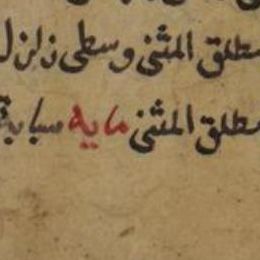 مطلق المثنى وسطى زلزل
مطلق المثنى مايه سبابة